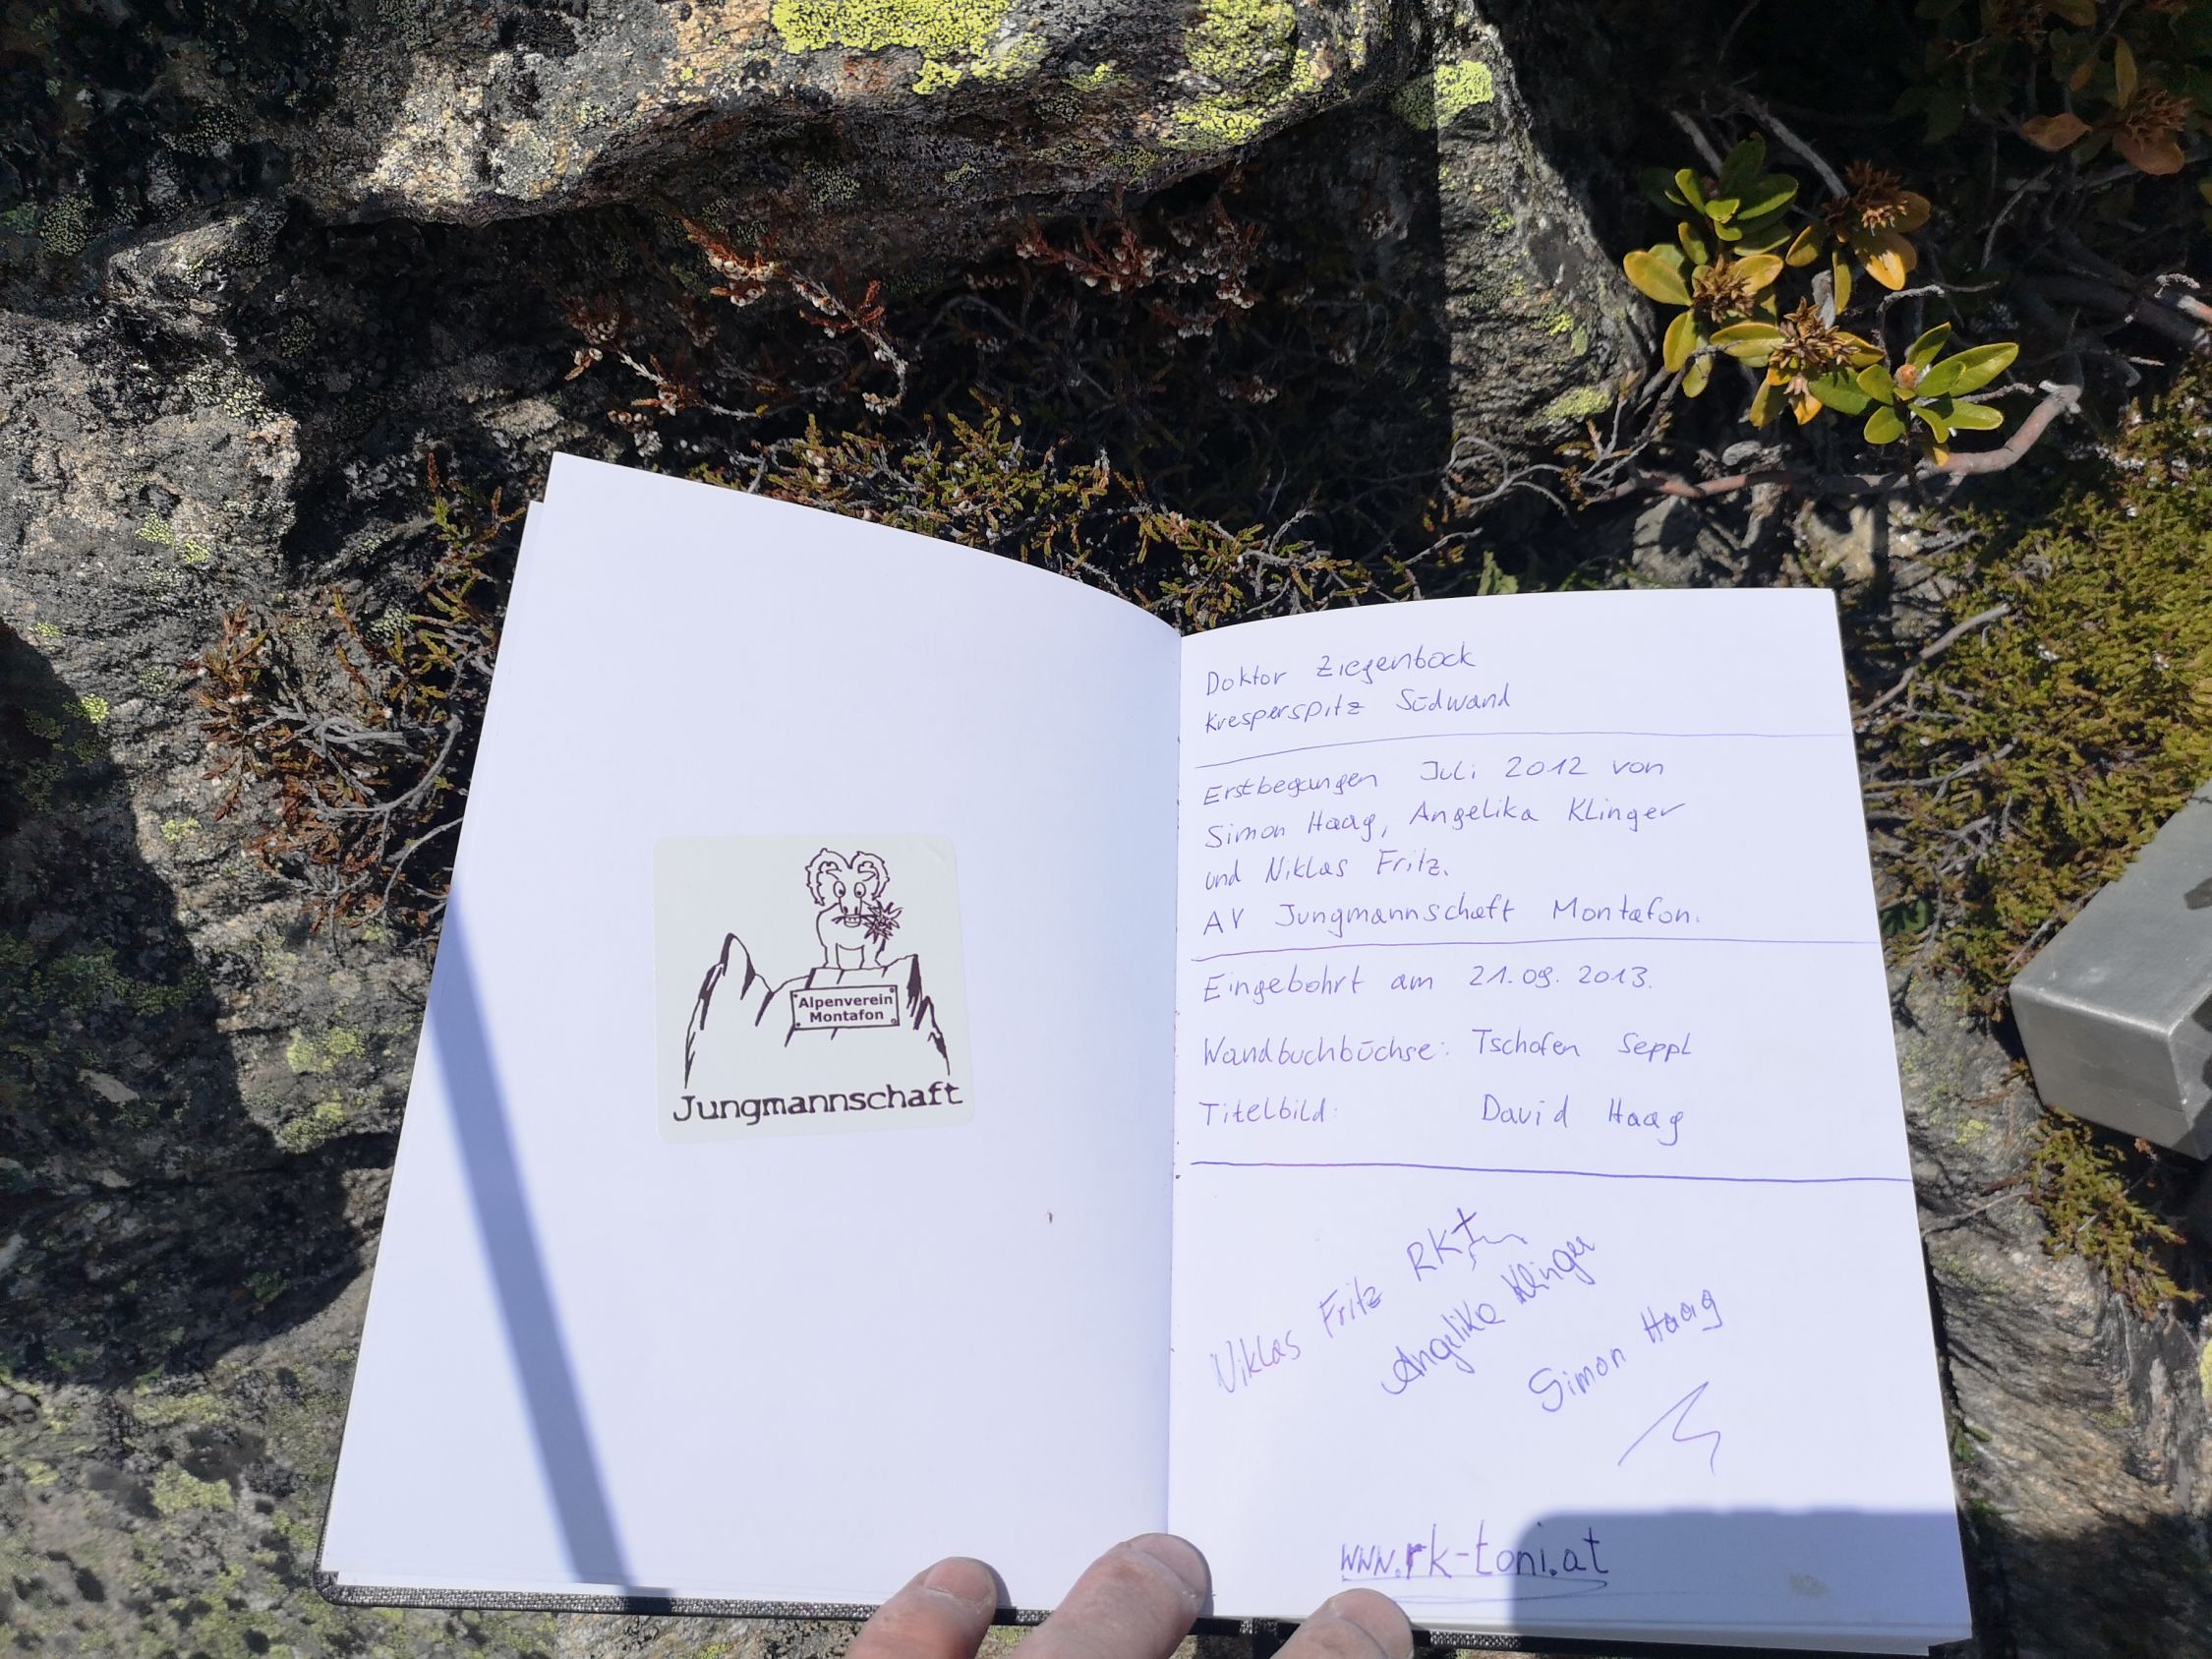 Alpenverein
Montafon
Jungmannschaft
Doktor Ziegenbock
Kresperspitz Südwand
Erstbegungen Juli 2012 von
Simon Haag, Angelika Klinger
und Niklas Fritz.
AV Jungmannschaft Montafon.
Eingebohrt am 21.09.2013.
Wandbuchbüchse: Tschofen Seppl
Titelbild: David Haag
Niklas Fritz RK
Angelika Klinger
Simon Haag
www.rk-toni.at